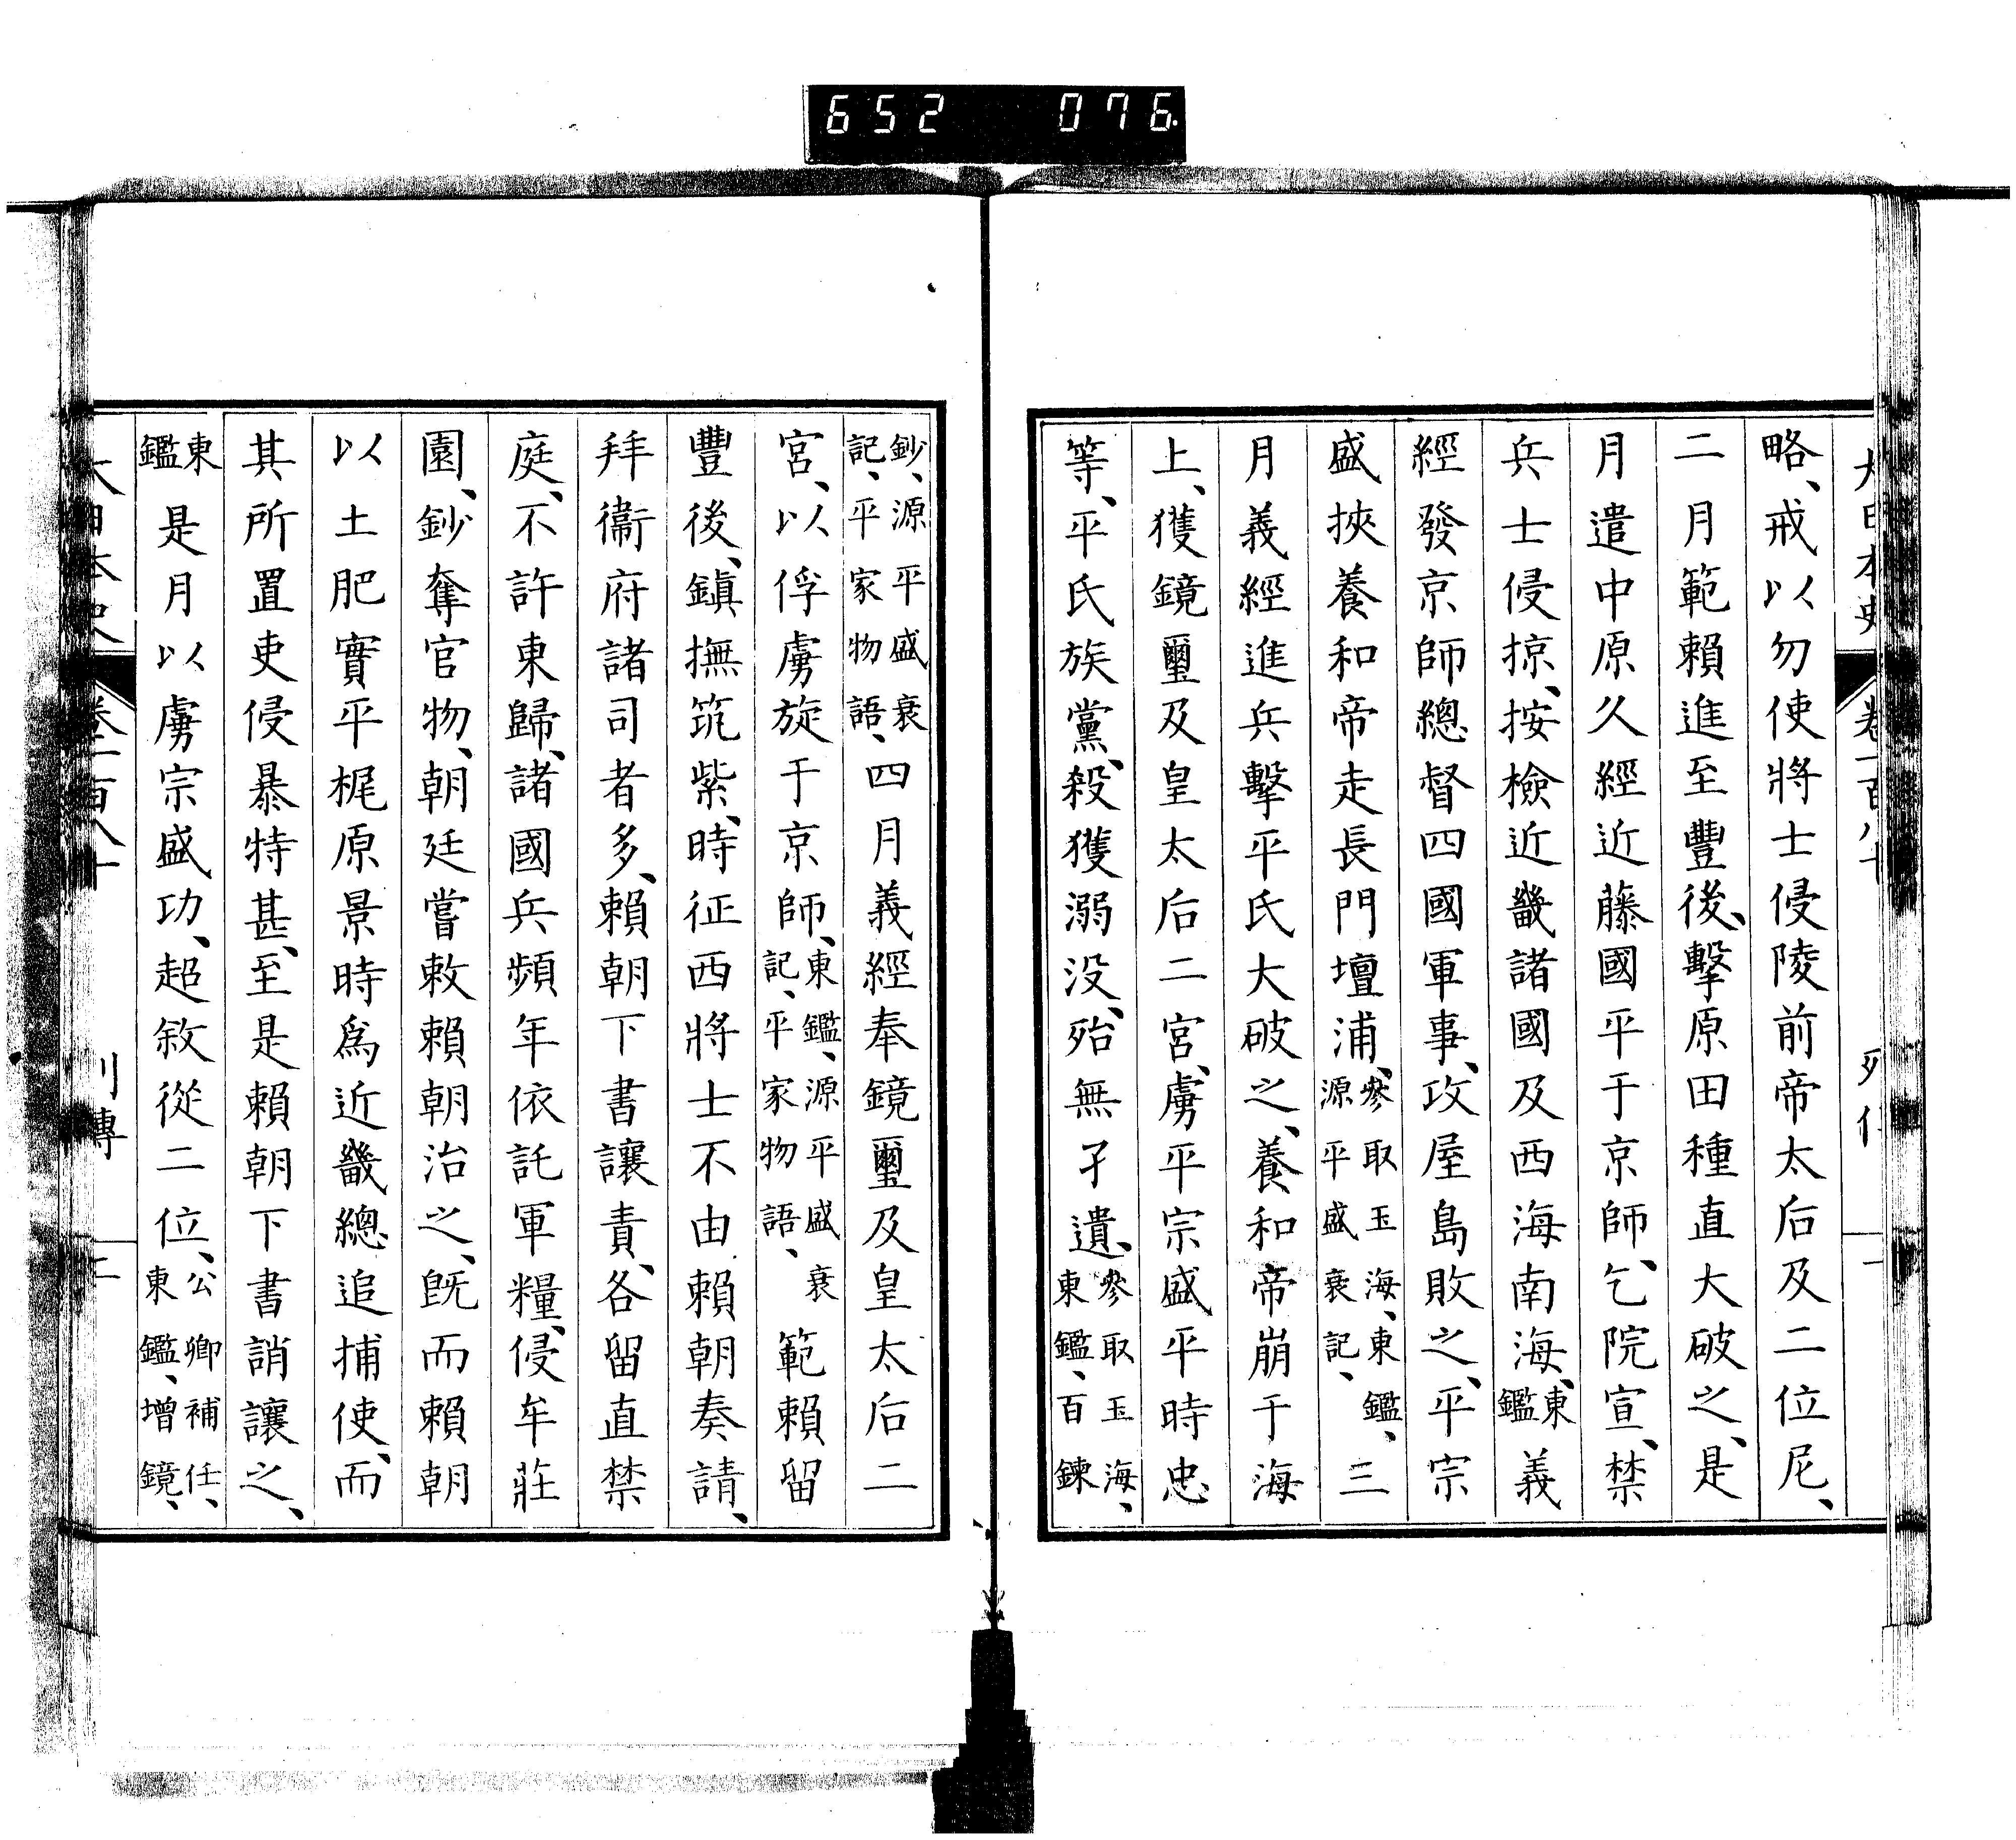 652 076
大日本史 卷一百八十 列傳 一
略、戒以勿使將士侵陵前帝太后及二位尼、
二月範賴進至豐後、擊原田種直大破之、是
月遣中原久經近藤國平于京師、乞院宣、禁
兵士侵掠、按檢近畿諸國及西海南海、東鑑義
經發京師總督四國軍事、攻屋島敗之、平宗
盛挾養和帝走長門壇浦、參取玉海、東鑑、源平盛衰記、三
月義經進兵擊平氏大破之、養和帝崩于海
上、獲鏡璽及皇太后二宮、虜平宗盛平時忠
等、平氏族黨、殺獲溺没、殆無孑遺、參取玉海、東鑑、百鍊
鈔、源平盛衰記、平家物語、四月義經奉鏡璽及皇太后二
宮、以俘虜旋于京師、東鑑、源平盛衰記、平家物語、範賴留
豐後、鎭撫筑紫、時征西將士不由賴朝奏請、
拜衞府諸司者多、賴朝下書讓責、各留直禁
庭、不許東歸、諸國兵頻年依託軍糧、侵牟莊
園、鈔奪官物、朝廷嘗敕賴朝治之、旣而賴朝
以土肥實平梶原景時爲近畿總追捕使、而
其所置吏侵暴特甚、至是賴朝下書誚讓之、
東鑑是月以虜宗盛功、超敘從二位、公卿補任、東鑑、增鏡、
大日本史 卷一百八十 列傳 二